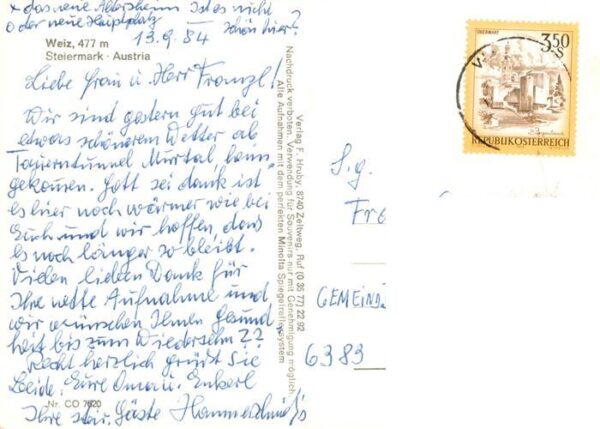 x das neue Altersheim Ist es nicht
o der neue Hauptplatz schön hier?
13.9.84
Weiz, 477 m
Steiermark · Austria
Liebe Frau u. Herr Franzl!
Wir sind gestern gut bei
etwas schönerem Wetter ab
Tauerntunnel Murtal heim
gekommen. Gott sei dank ist
es hier noch wärmer wie bei
Euch und wir hoffen, dass
es noch länger so bleibt.
Vielen lieben Dank für
Ihre nette Aufnahme und
wir wünschen Ihnen Gesund
heit bis zum Wiedersehn??
Recht herzlich grüßt Sie
Beide. Eure Oma u. Enkerl
Ihre Gäste
Nr. CO 7820
Verlag F. Hruby, 8740 Zeltweg, Ruf (0 35 77) 22 92
Nachdruck verboten. Verwendung für Souvenirs nur mit Genehmigung möglich
Alle Aufnahmen mit dem perfekten Minolta Spiegelreflexsystem
OBERWART
3.50
S
REPUBLIK ÖSTERREICH
S.g.
GEMEIND
6383